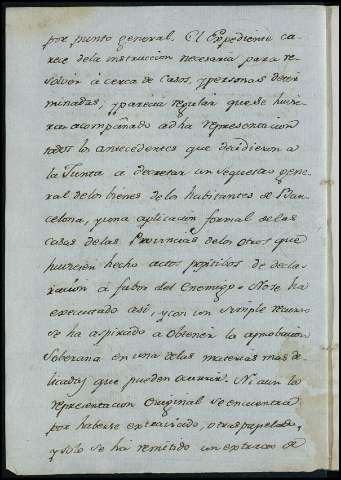 por punto general. El Expediente ca-
rece de la instruccion necesaria para re-
solver á cerca de casos, y personas deter
minadas, y parecia regular que se huvie
ran acompañado a dha representacion
todos los antecedentes que decidieron a
la Junta a decretar un sequestro gene-
ral de los bienes de los habitantes de Bar-
celona, y una aplicacion formal de las
casas de las Provincias de los otros que
huviesen hecho actos positivos de decla-
racion á fabor del Enemigo. No se ha
executado asi, y con un simple recurso
se ha aspirado a obtener la aprobacion
Soberana en una de las materias mas de-
licadas que pueden ocurrir. Ni aun la
representacion original se encuentra
por haberse extraviado, ò traspapelado,
y solo se ha remitido un extracto de